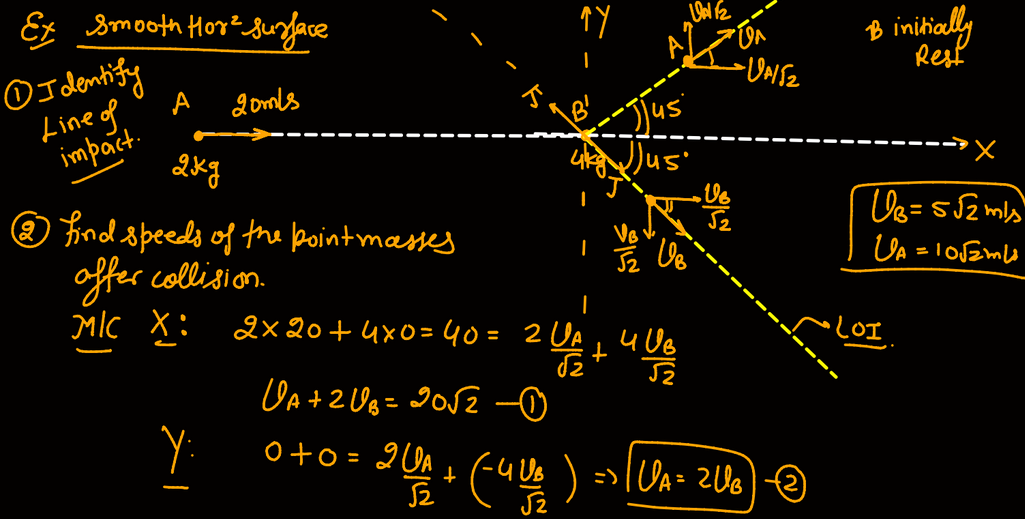 Ex Smooth Hor² surface
① Identify
Line of
impact.
A 20m/s
2kg
Y
B initially
Rest
A
VA/√2
VA
VA/√2
J
B
45°
X
4kg
45°
J
VB/√2
VB/√2
VB
VB = 5√2 m/s
VA = 10√2 m/s
LOI.
② find speeds of the point masses
after collision.
M/C X: 2×20 + 4×0 = 40 = 2 VA/√2 + 4 VB/√2
VA + 2VB = 20√2 —①
Y: 0+0 = 2VA/√2 + (-4VB/√2) => VA = 2VB -②